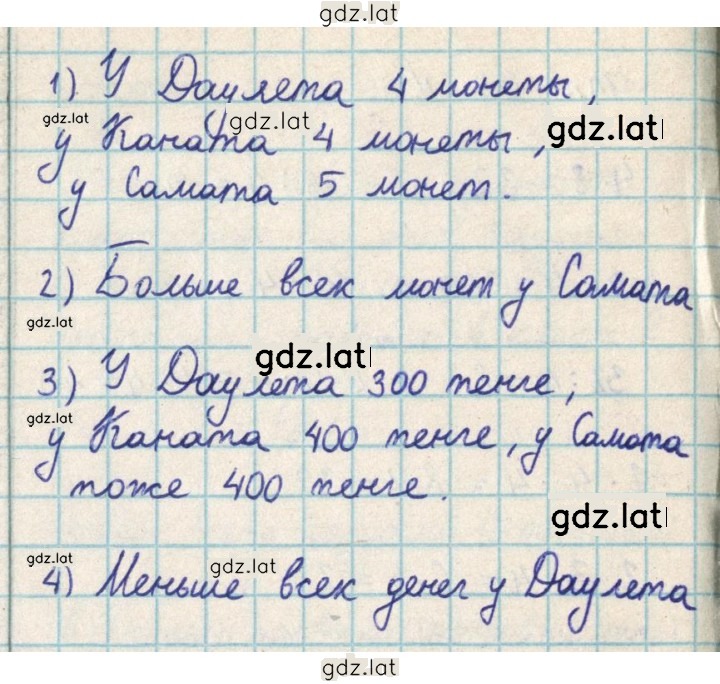 gdz.lat
1) У Даулета 4 монеты,
gdz.lat gdz.lat gdz.lat
у Каната 4 монеты,
у Самата 5 монет.
2) Больше всех монет у Самата
gdz.lat
gdz.lat
3) У Даулета 300 тенге,
gdz.lat
у Каната 400 тенге, у Самата
тоже 400 тенге.
gdz.lat
gdz.lat gdz.lat
4) Меньше всех денег у Даулета
gdz.lat